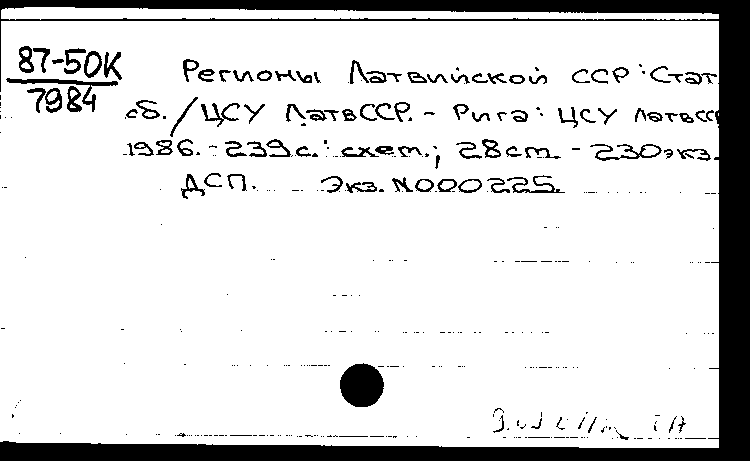 87-50К
7984
Регионы Латвийской ССР : Стат
сб. / ЦСУ ЛатвССР. - Рига : ЦСУ ЛатвСС
1986. - 239 с. : схем.; 28 cm. - 230 экз.
ДСП. Экз. N000225.